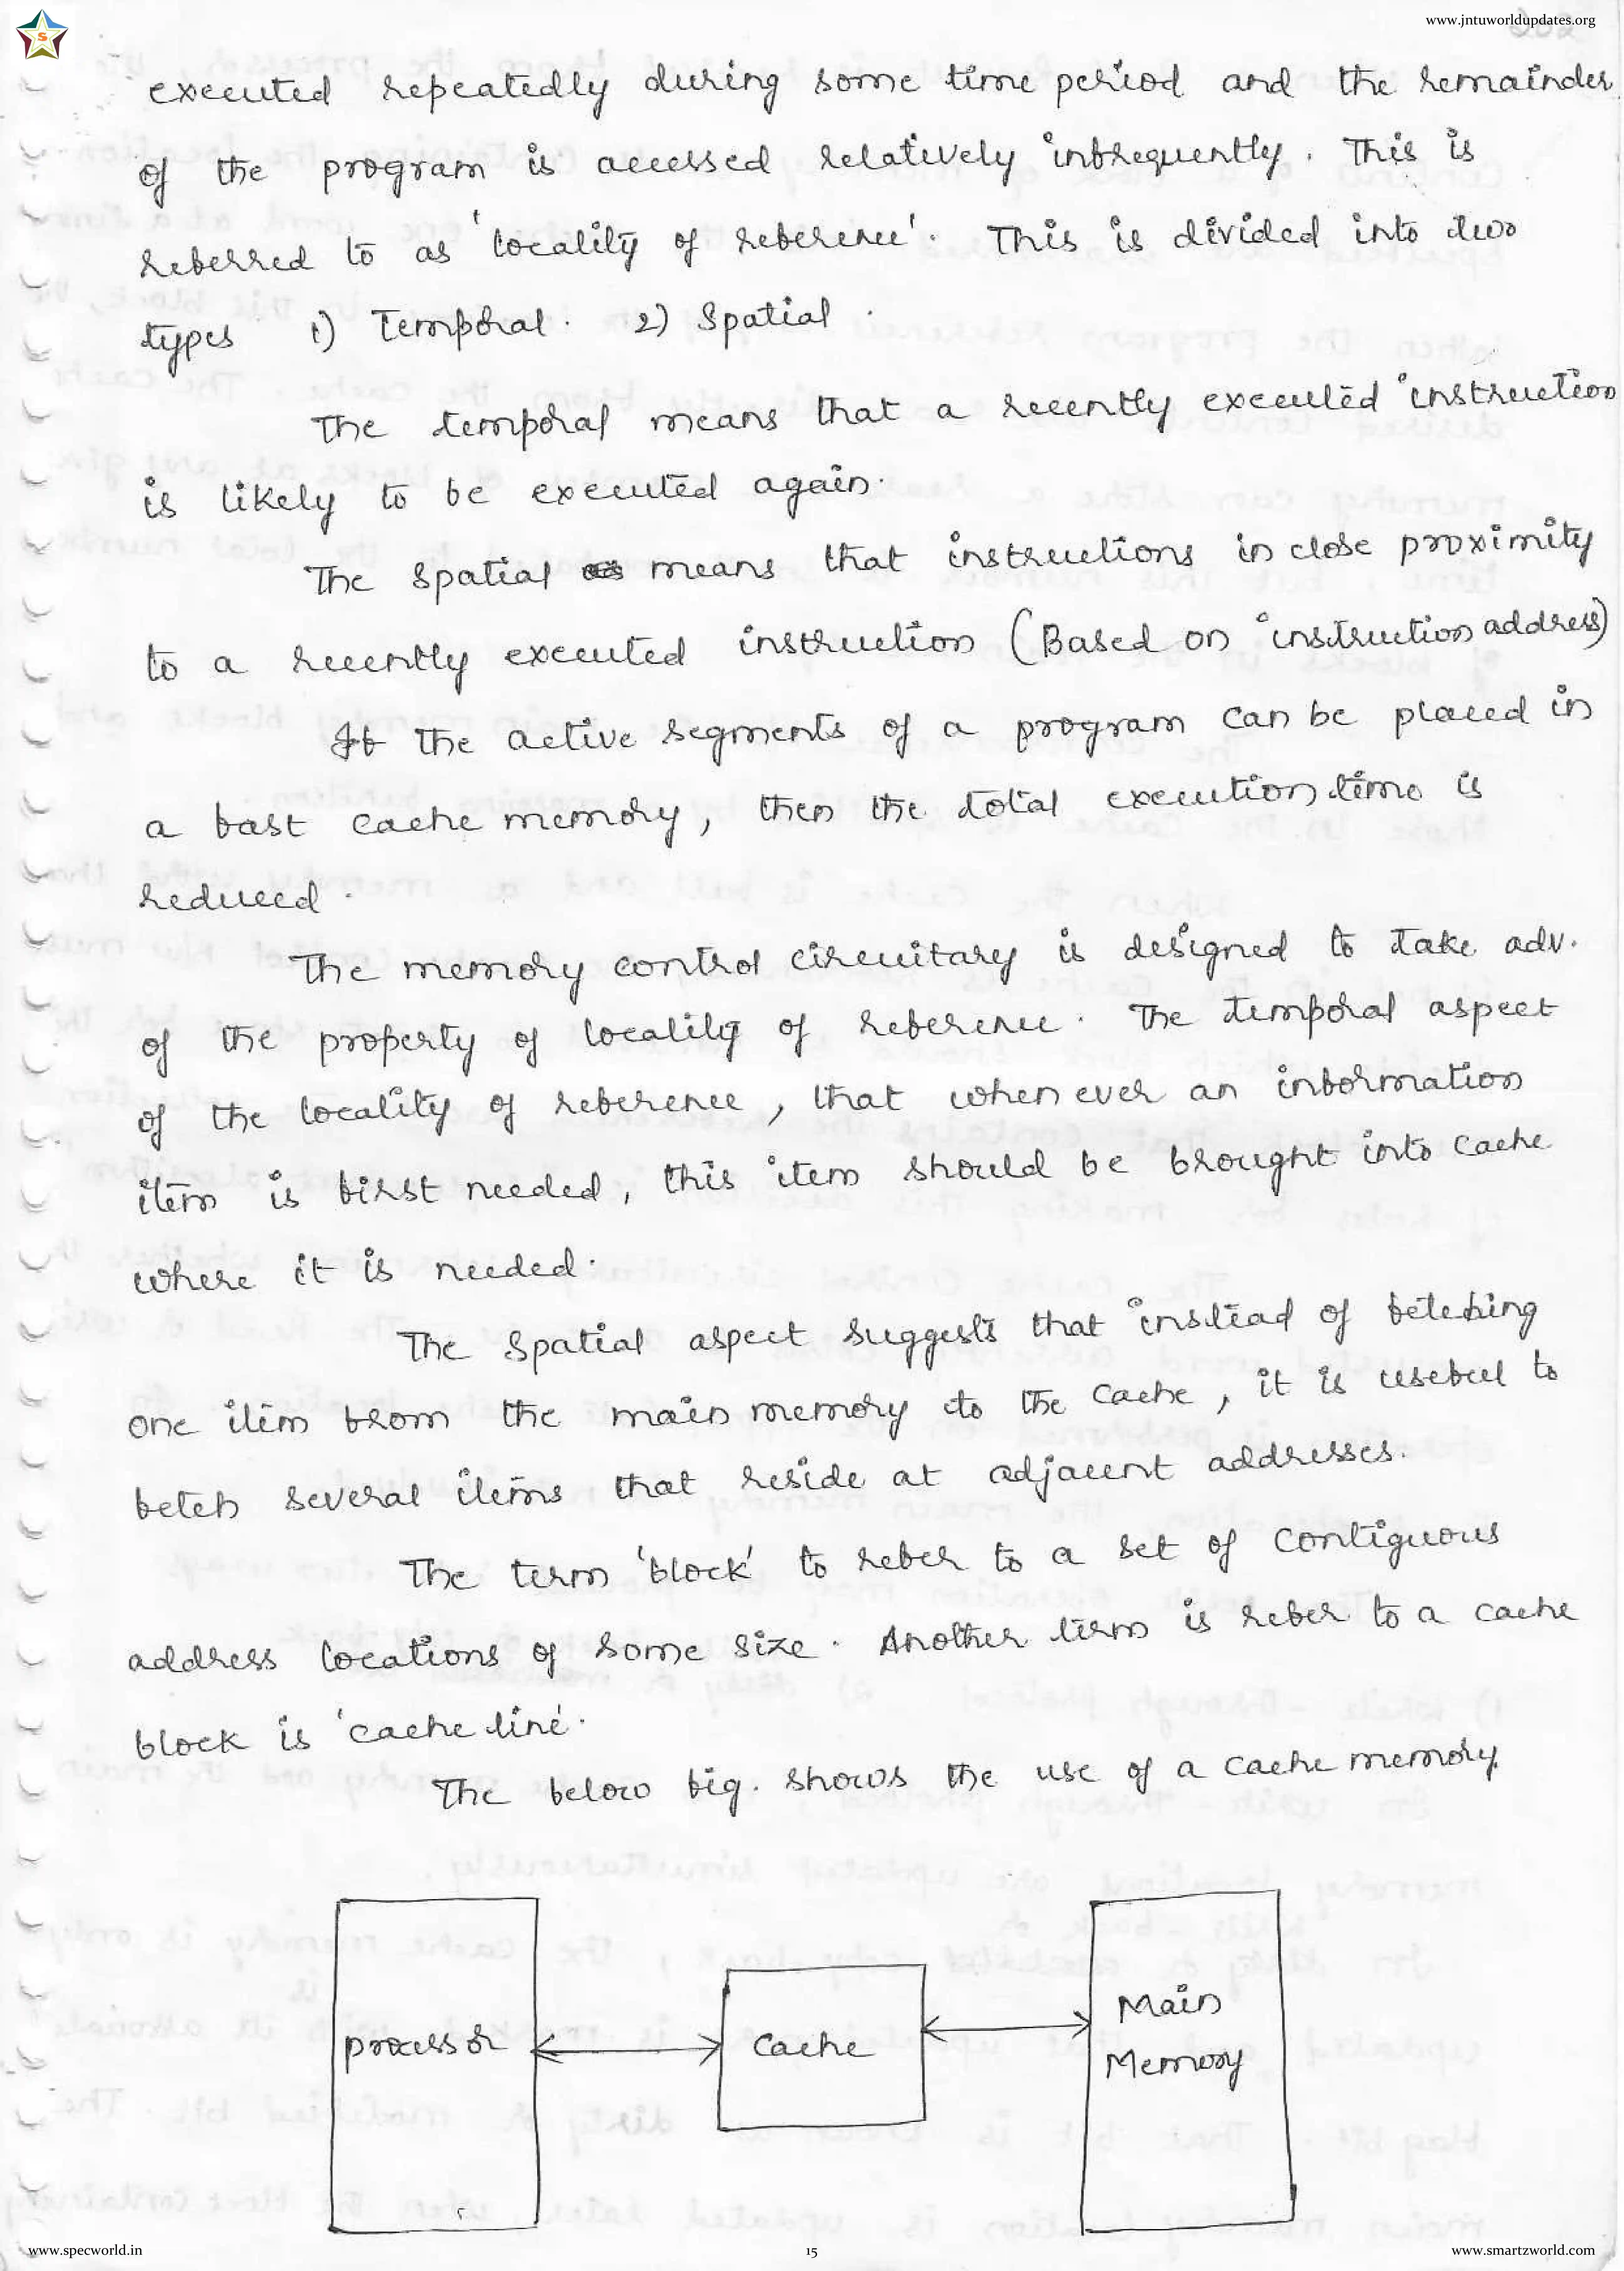 www.jntuworldupdates.org
S
executed repeatedly during some time period and the remainder
of the program is accessed relatively infrequently. This is
referred to as 'locality of reference'. This is divided into two
types 1) Temporal. 2) Spatial.
The temporal means that a recently executed instruction
is likely to be executed again.
The spatial means that instructions in close proximity
to a recently executed instruction (Based on instruction address)
If the active segments of a program can be placed in
a fast cache memory, then the total execution time is
reduced.
The memory control circuitary is designed to take adv.
of the property of locality of reference. The temporal aspect
of the locality of reference, that when ever an information
item is first needed, this item should be brought into cache
where it is needed.
The Spatial aspect suggests that instead of fetching
one item from the main memory to the cache, it is useful to
fetch several items that reside at adjacent addresses.
The term 'block' to refer to a set of contiguous
address locations of some size. Another term is refer to a cache
block is 'cache line'.
The below fig. shows the use of a cache memory.
processor
cache
Main
Memory
www.specworld.in
15
www.smartzworld.com